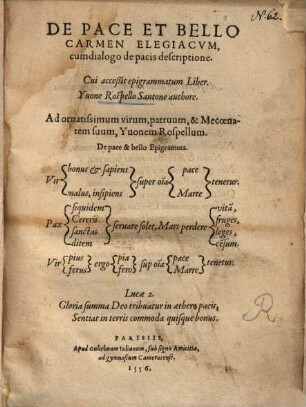 N. 62.
DE PACE ET BELLO
CARMEN ELEGIACVM,
cum dialogo de pacis descriptione.
Cui accessit epigrammatum Liber.
Yuone Rospello Santone authore.
Ad ornatissimum virum, patruum, & Mecœna-
tem suum, Yuonem Rospellum.
De pace & bello Epigramma.
Vir { bonus & sapiens / malus, insipiens } super oīa { pace / Marte } tenetur.
Pax { siquidem / Cereris / sanctas / ditem } seruare solet, Mars perdere { vitā, / fruges, / leges, / cēsum.
Vir { pius / ferus } ergo { pia / fero } sup oīa { pace / Marte } tenetur.
Lucæ 2.
Gloria summa Deo tribuatur in æthere, pacis,
Sentiat in terris commoda quisque bonus.
PARISIIS,
Apud Guilielmum Iulianum, sub signo Amicitiæ,
ad gymnasium Cameracense.
1556.
R